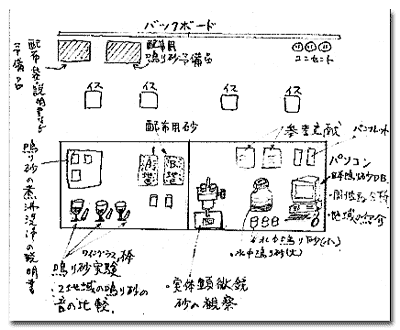 バックボード
配布用
鳴り砂予備品
コンセント
配布袋・説明書など
予備品
イス
イス
イス
イス
配布用砂
参考文献
パンフレット
パソコン
鳴り砂の煮沸洗浄の説明書
ワイングラス, 棒
鳴り砂実験
・2地域の鳴り砂の
音の比較.
・実体顕微鏡
砂の観察
・水中鳴り砂(大)
・地域の紹介